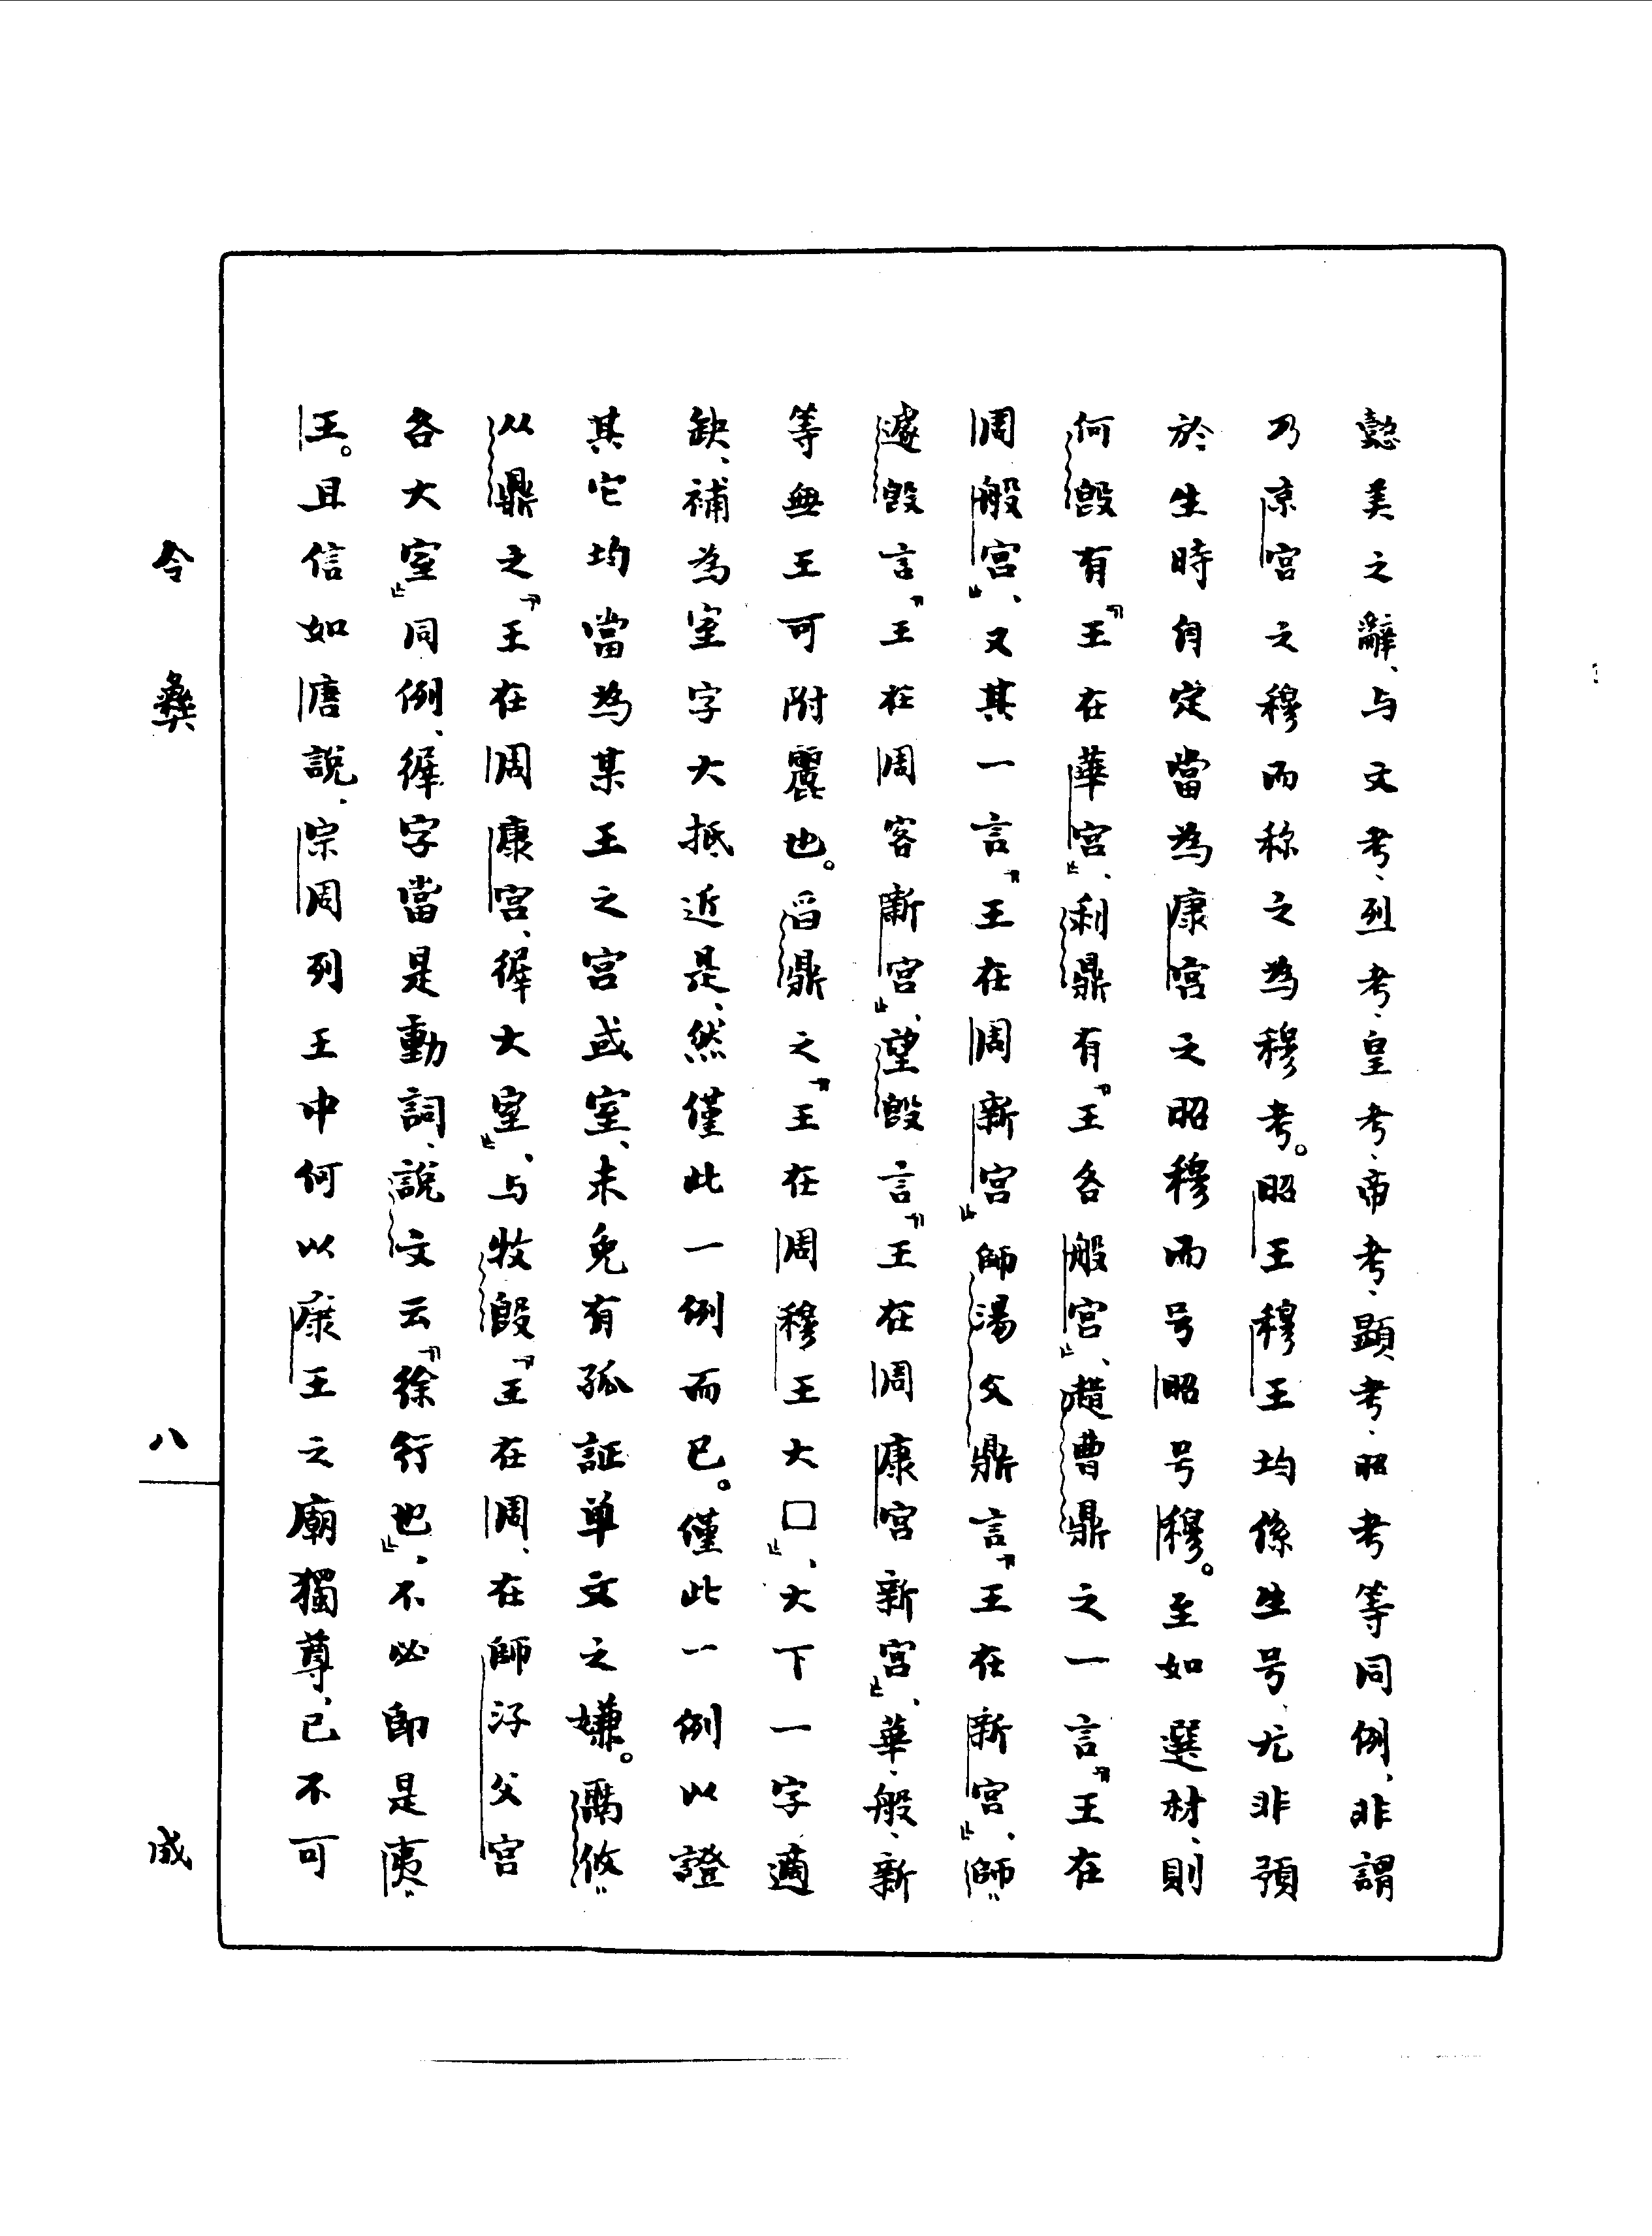 懿美之辭、与文考、烈考、皇考、帝考、顯考、昭考等同例、非謂
乃京宮之穆而称之為穆考。昭王穆王均係生号、尤非預
於生時自定當為康宮之昭穆而号昭号穆。至如選材、則
何𣪘有「王在華宮」、利鼎有「王各般宮」、趞曹鼎之一言「王在
周般宮」、又其一言「王在周新宮」師湯父鼎言「王在新宮」、師〻
遽𣪘言「王在周客新宮」、望𣪘言「王在周康宮新宮」、華、般、新
等無王可附麗也。舀鼎之「王在周穆王大□」、大下一字適
缺、補為室字大抵近是、然僅此一例而已。僅此一例以證
其它均當為某王之宮或室、未免有孤証单文之嫌。𤔲攸〻
从鼎之「王在周康宮、徲大室」、与牧𣪘「王在周、在師汓父宮
各大室」同例、徲字當是動詞、說文云「徐行也」、不必即是夷〻
王。且信如唐說、宗周列王中何以康王之廟獨尊、已不可
令彝
八
成